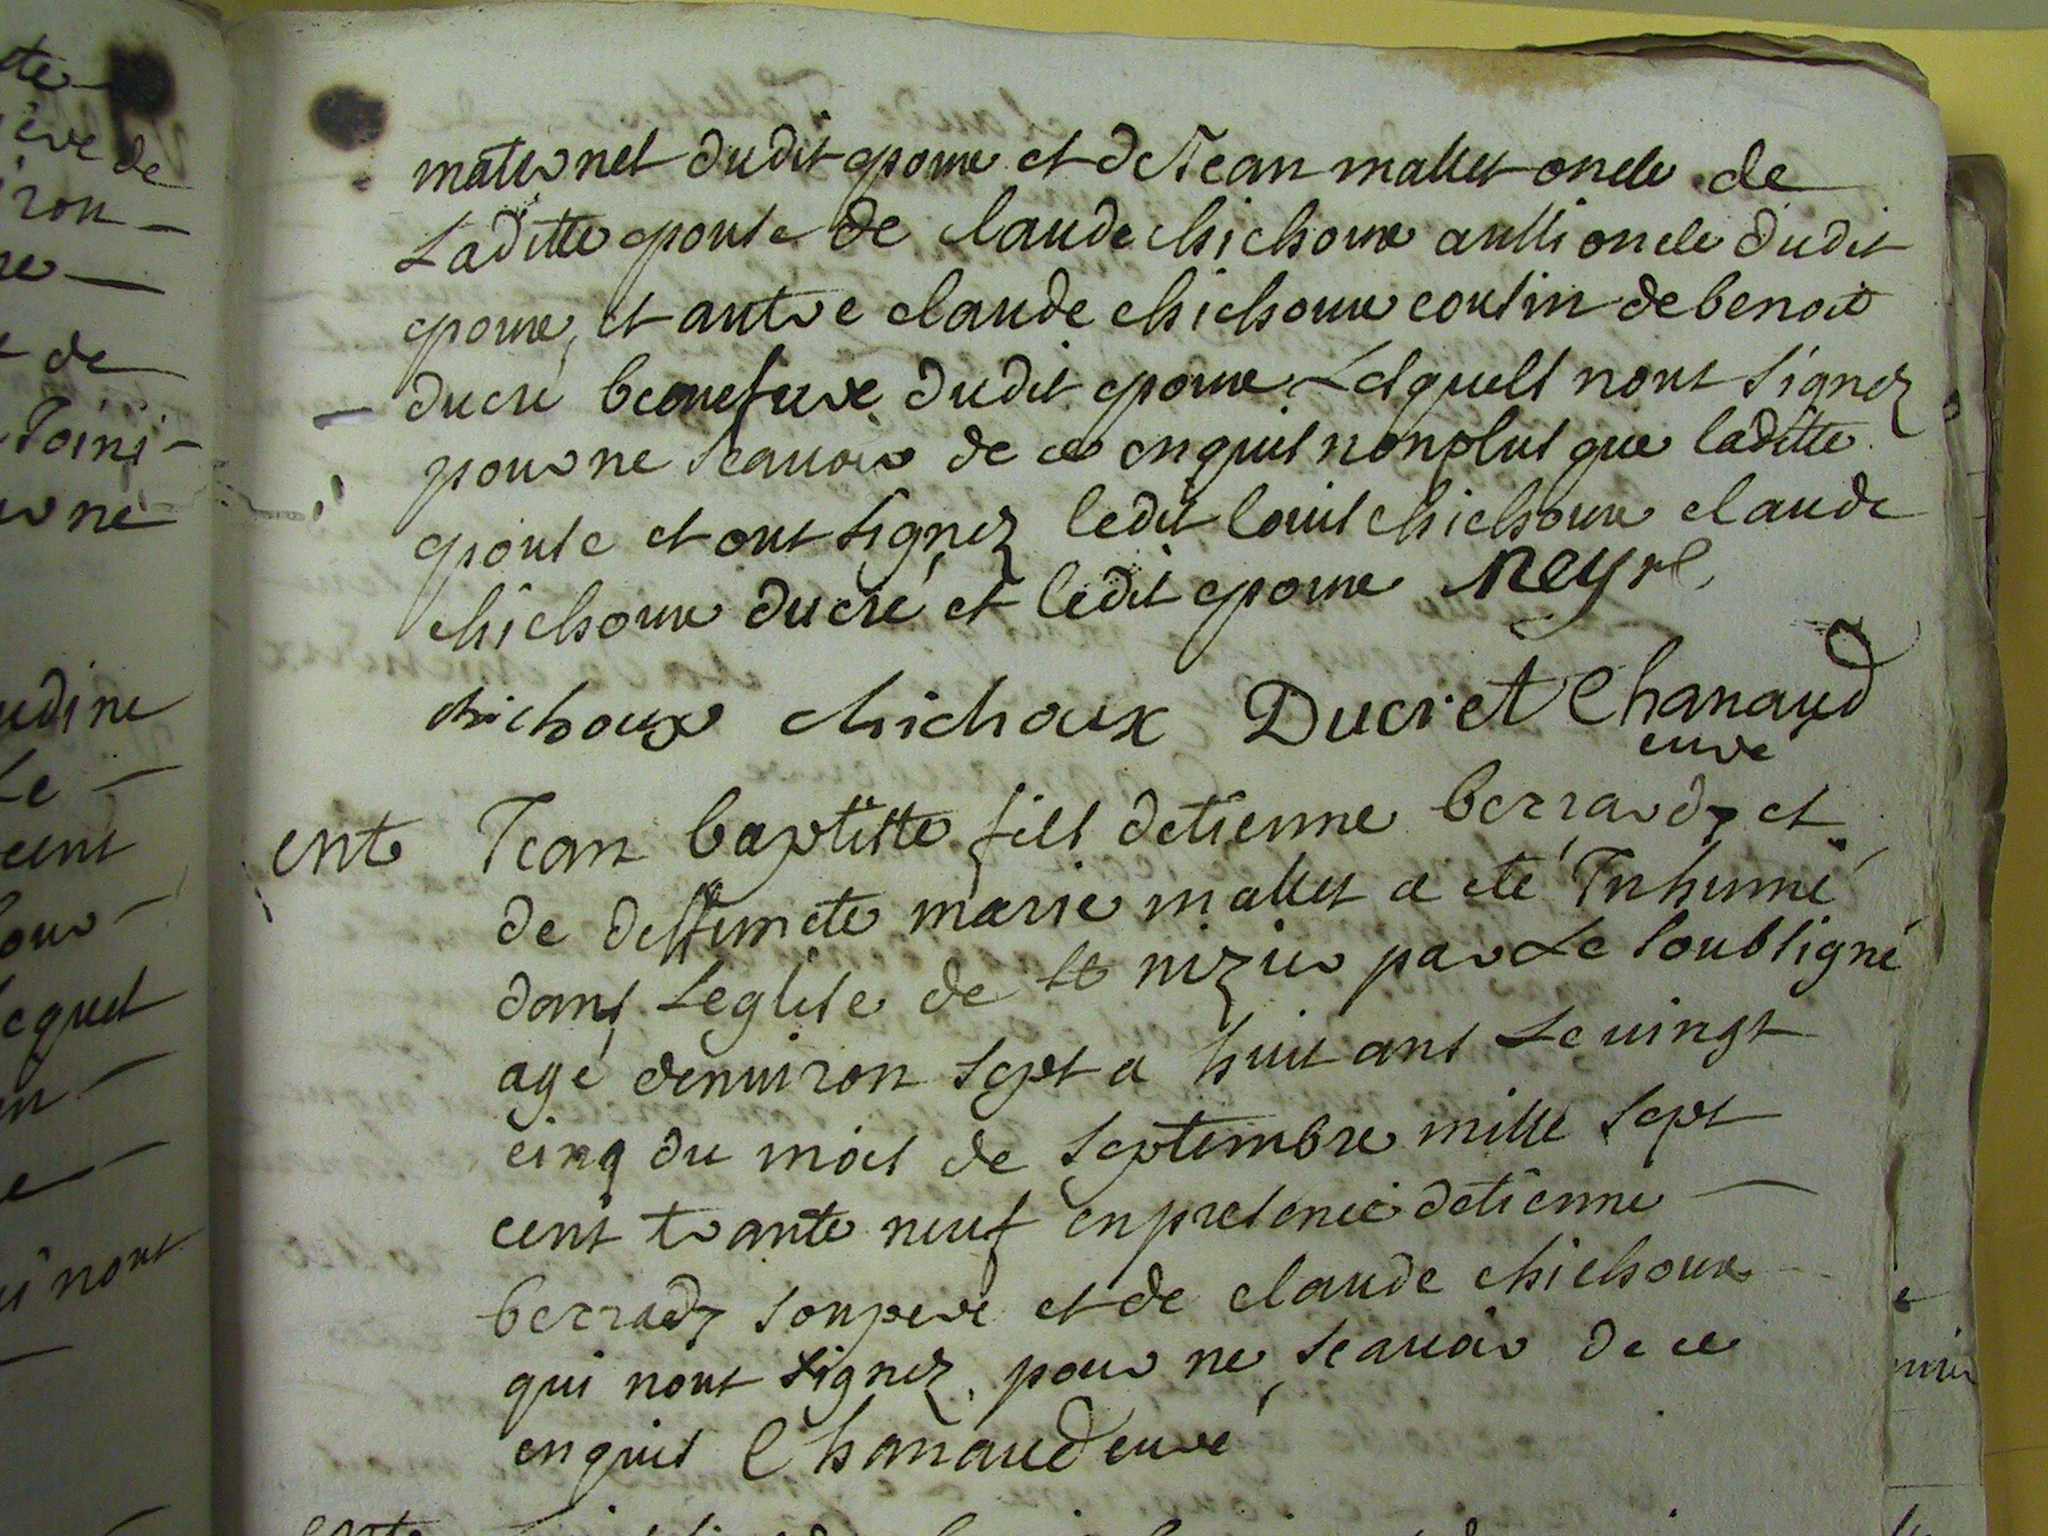 maternel dudit epoux et de Jean mallet oncle de
Laditte epouse de claude chichoux aussi oncle dudit
epoux, et autre claude chichoux cousin de benoit
ducré beaufrere dudit epoux Lesquels nont signez
pour ne scauoir de ce enquis nonplus que laditte
epouse et ont signez ledit louis chichoux claude
chichoux ducré et ledit epoux Neyre
chichoux chichoux Ducret Chanaud
curé
ent Jean baptiste fils detienne berrardy et
de deffuncte marie mallet a eté Inhumé
dans Leglise de st nizier par Le soubsigné
agé denuiron sept a huit ans Le uingt
cinq du mois de septembre mille sept
cent trante neuf en presence detienne
berrardy son pere et de claude chichoux
qui nont signez pour ne scauoir de ce
enquis Chanaud curé
te
de
ron
de
Toini
ne
udine
Le
cent
lequel
i nont